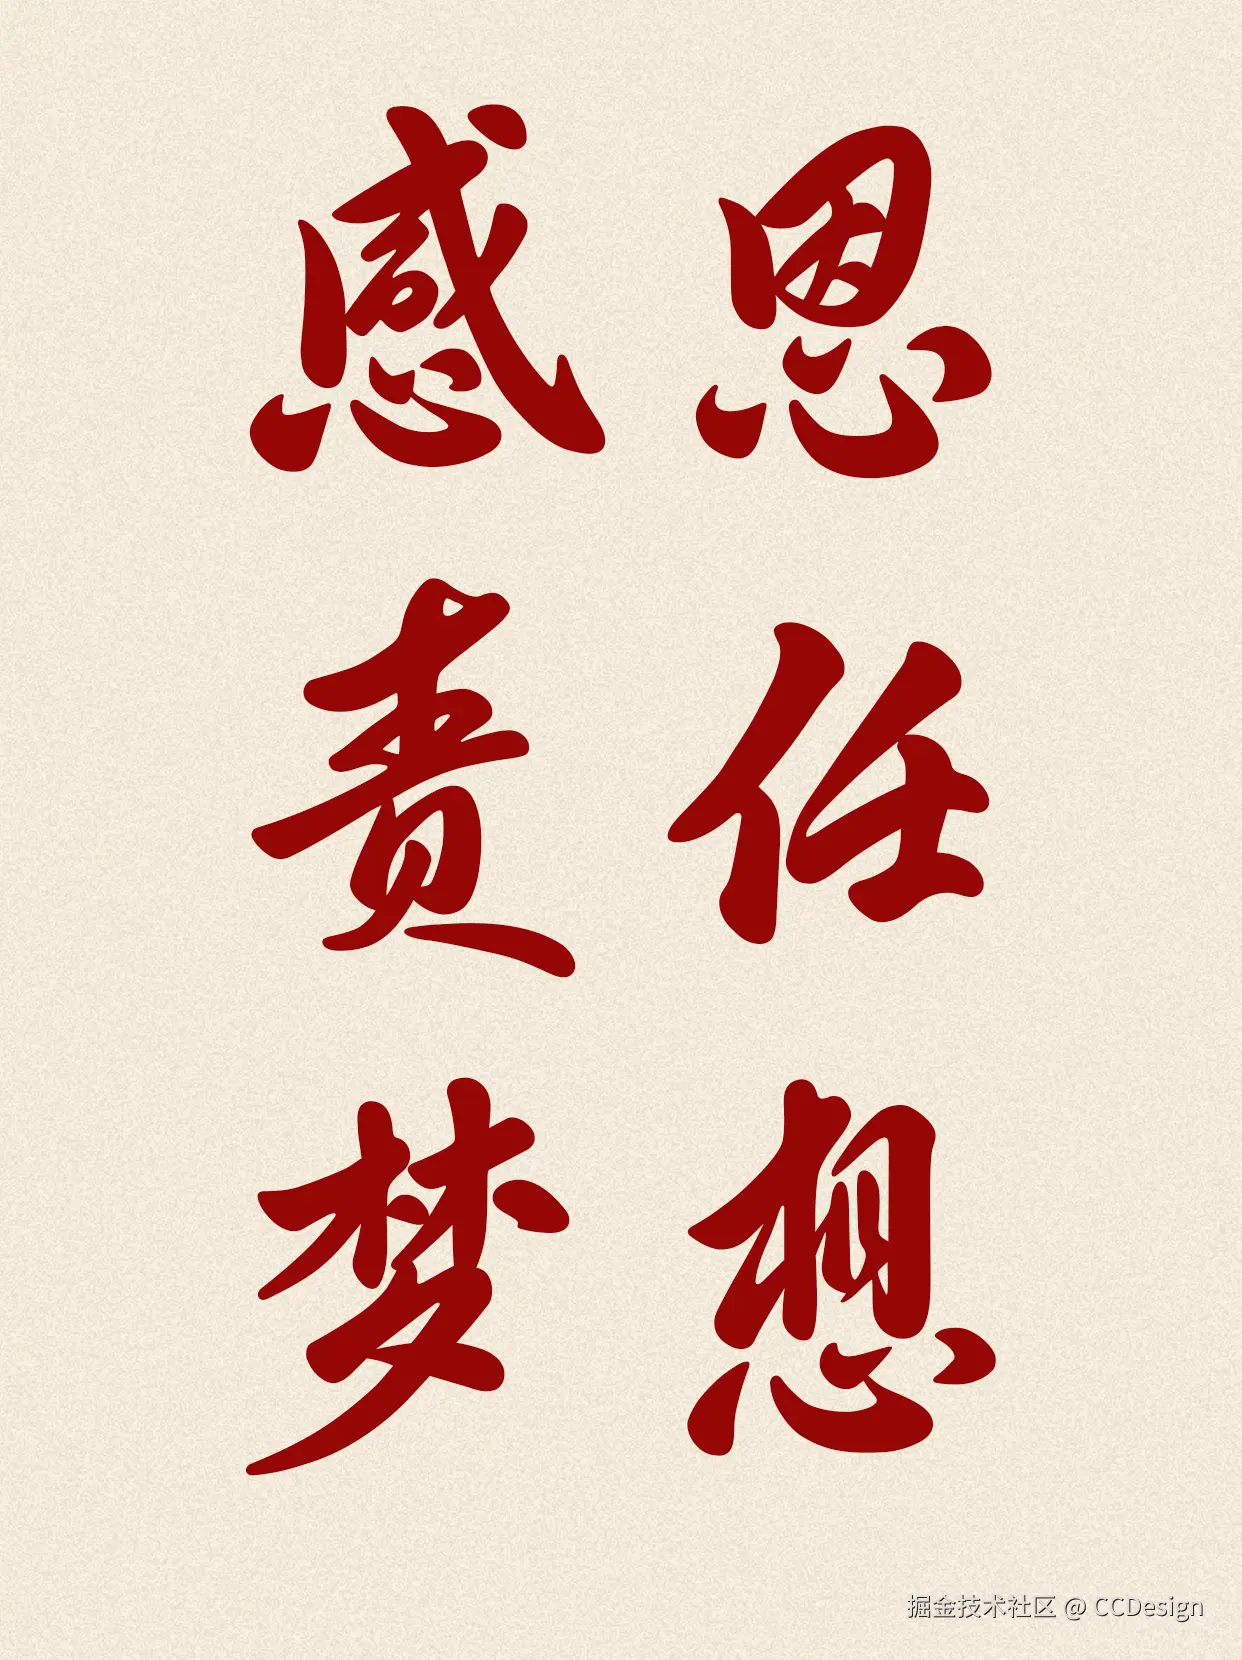 感恩
责任
梦想
掘金技术社区 @ CCDesign